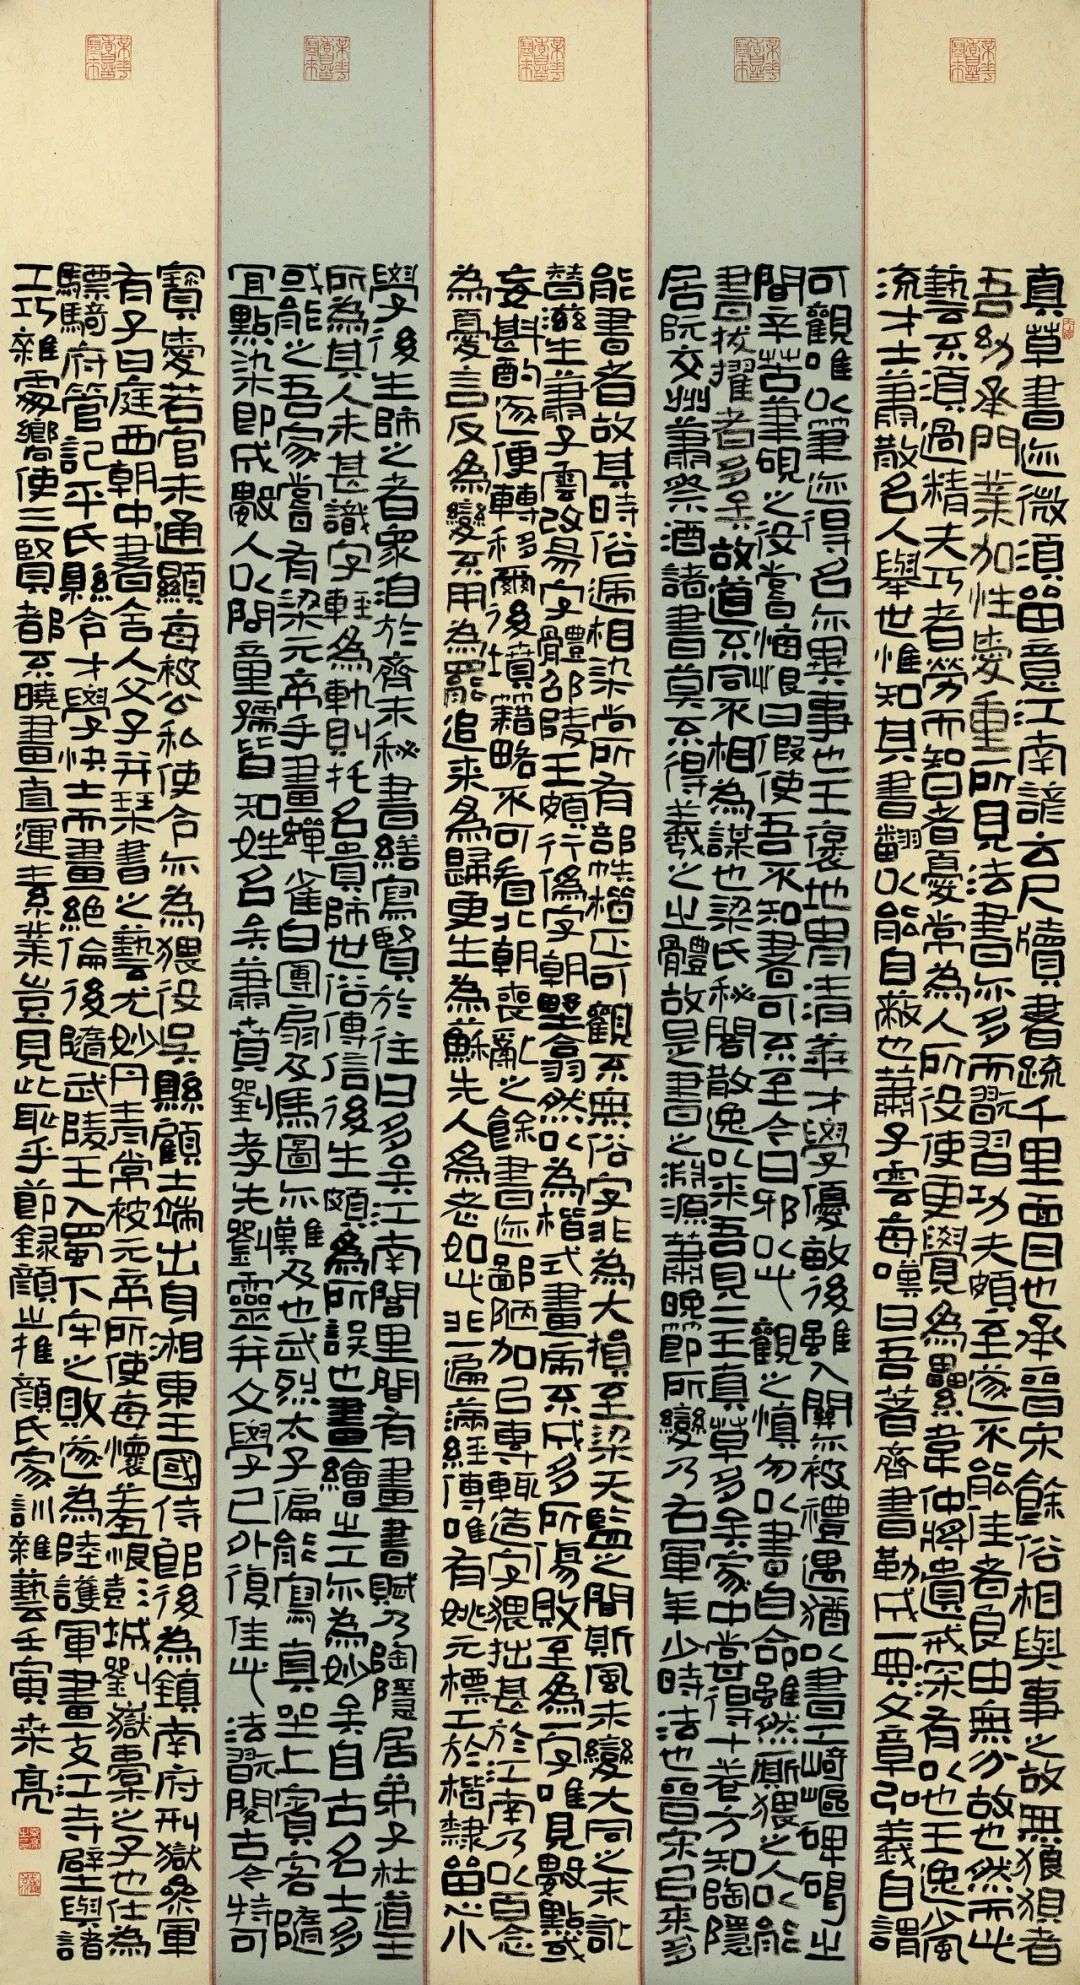 真草書迹微須留意江南諺云尺牘書疏千里面目也承晉宋餘俗相與事之故無狼狽者
吾幼承門業加性愛重所見法書亦多而翫習功夫頗至遂不能佳者良由無分故也然而此
藝不須過精夫巧者勞而智者憂常為人所役使更覺為累韋仲將遺戒深有以也王逸少風
流才士蕭散名人舉世惟知其書翻以能自蔽也蕭子雲每嘆曰吾著齊書勒成一典文章弘義自謂
可觀唯以筆迹得名亦異事也王褒地胄清華才學優敏後雖入關亦被禮遇猶以書工崎嶇碑碣之
間辛苦筆硯之役嘗悔恨曰假使吾不知書可不至今日邪以此觀之慎勿以書自命雖然厮猥之人以能
書拔擢者多矣故道不同不相為謀也梁氏秘閣散逸以來吾見二王真草多矣家中嘗得十卷方知陶隱
居阮交州蕭祭酒諸書莫不得羲之之體故是書之淵源蕭晚節所變乃右軍年少時法也晉宋已來多
能書者故其時俗遞相染尚所有部帙楷正可觀不無俗字非為大損至梁天監之間斯風未變大同之末訛
替滋生蕭子雲改易字體邵陵王頗行偽字朝野翕然以為楷式畫虎不成多所傷敗至為一字唯見數點或
妄斟酌逐便轉移爾後墳籍略不可看北朝喪亂之餘書迹鄙陋加以專輒造字猥拙甚於江南乃以百念
為憂言反為變不用為罷追來為歸更生為蘇先人為老如此非一遍滿經傳唯有姚元標工於楷隸留心小
學後生師之者眾洎於齊末秘書繕寫賢於往日多矣江南閭里間有畫書賦乃陶隱居弟子杜道士
所為其人未甚識字輕為軌則托名貴師世俗傳信後生頗為所誤也畫繪之工亦為妙矣自古名士多
或能之吾家嘗有梁元帝手畫蟬雀白團扇及馬圖亦難及也武烈太子偏能寫真坐上賓客隨
宜點染即成數人以問童孺皆知姓名矣蕭賁劉孝先劉靈并文學已外復佳此法翫閱古今特可
寶愛若官未通顯每被公私使令亦為猥役吳縣顧士端出身湘東王國侍郎後為鎮南府刑獄參軍
有子曰庭西朝中書舍人父子并琹書之藝尤妙丹青常被元帝所使每懷羞恨彭城劉嶽橐之子也仕為
驃騎府管記平氏縣令才學快士而畫絕倫後隨武陵王入蜀下牢之敗遂為陸護軍畫支江寺壁與諸
工巧雜處嚮使三賢都不曉畫直運素業豈見此恥乎節録顏之推顏氏家訓雜藝壬寅桒亮